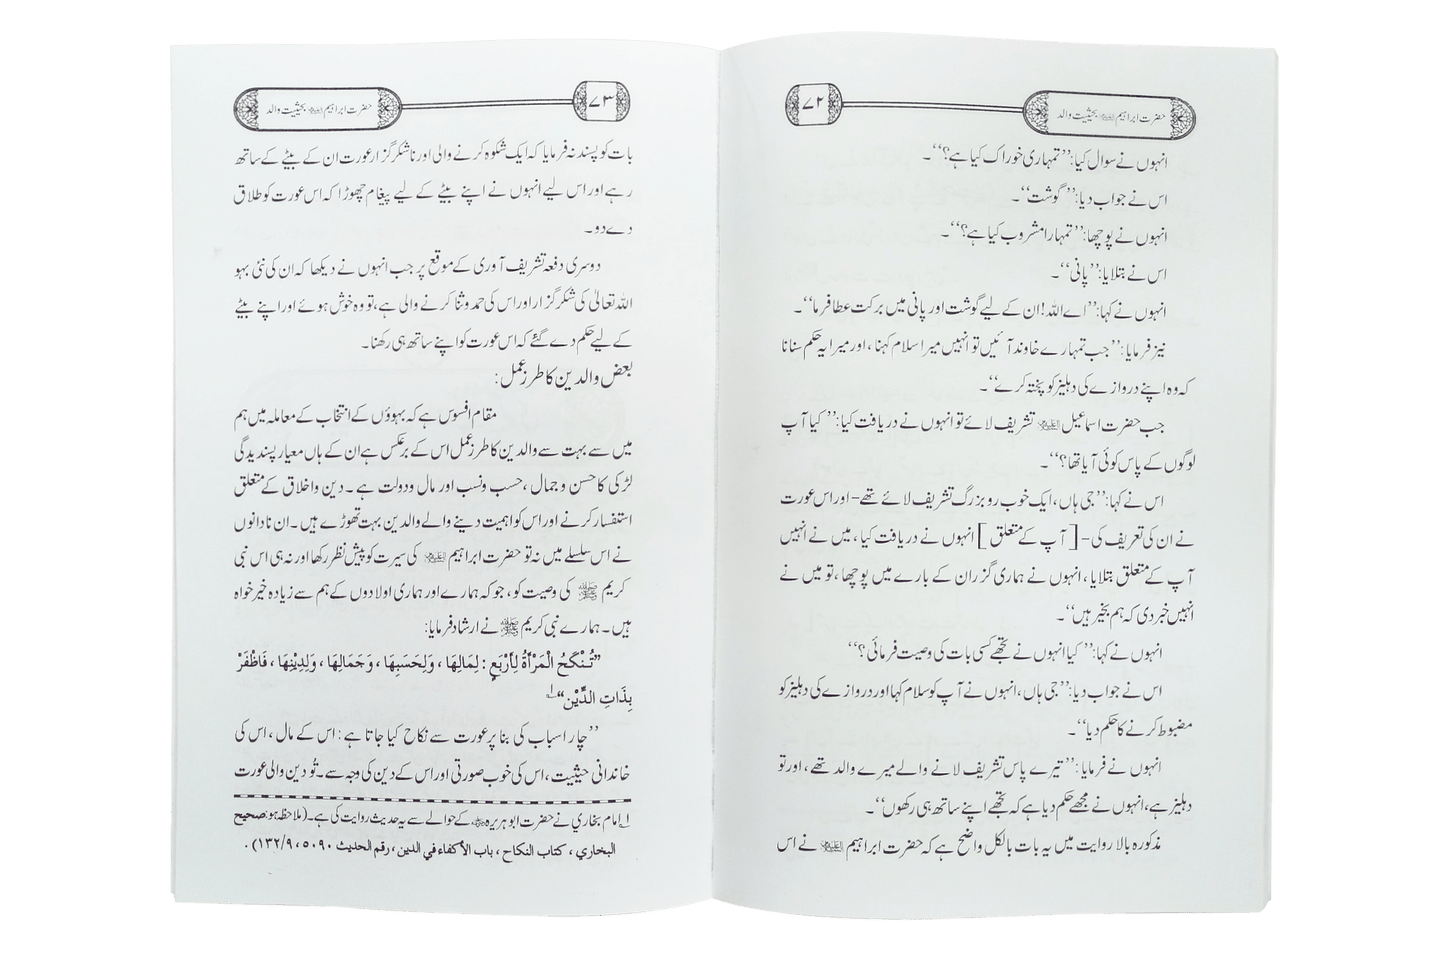 ۷۲
حضرت ابراہیم علیہ السلام بحیثیت والد
انہوں نے سوال کیا: ’’تمہاری خوراک کیا ہے؟‘‘۔
اس نے جواب دیا: ’’گوشت‘‘۔
انہوں نے پوچھا: ’’تمہارا مشروب کیا ہے؟‘‘۔
اس نے بتلایا: ’’پانی‘‘۔
انہوں نے کہا: ’’اے اللہ! ان کے لیے گوشت اور پانی میں برکت عطا فرما‘‘۔
نیز فرمایا: ’’جب تمہارے خاوند آئیں تو انہیں میرا سلام کہنا، اور میرا یہ حکم سنانا
کہ وہ اپنے دروازے کی دہلیز کو پختہ کرے‘‘۔
جب حضرت اسماعیل علیہ السلام تشریف لائے تو انہوں نے دریافت کیا: ’’کیا آپ
لوگوں کے پاس کوئی آیا تھا؟‘‘۔
اس نے کہا: ’’جی ہاں، ایک خوب رو بزرگ تشریف لائے تھے - اور اس عورت
نے ان کی تعریف کی - [آپ کے متعلق] انہوں نے دریافت کیا، میں نے انہیں
آپ کے متعلق بتلایا، انہوں نے ہماری گزران کے بارے میں پوچھا، تو میں نے
انہیں خبر دی کہ ہم بخیر ہیں‘‘۔
انہوں نے کہا: ’’کیا انہوں نے تجھے کسی بات کی وصیت فرمائی؟‘‘
اس نے جواب دیا: ’’جی ہاں، انہوں نے آپ کو سلام کہا اور دروازے کی دہلیز کو
مضبوط کرنے کا حکم دیا‘‘۔
انہوں نے فرمایا: ’’تیرے پاس تشریف لانے والے میرے والد تھے، اور تو
دہلیز ہے، انہوں نے مجھے حکم دیا ہے کہ تجھے اپنے ساتھ ہی رکھوں‘‘۔
مذکورہ بالا روایت میں یہ بات بالکل واضح ہے کہ حضرت ابراہیم علیہ السلام نے اس
۷۳
حضرت ابراہیم علیہ السلام بحیثیت والد
بات کو پسند نہ فرمایا کہ ایک شکوہ کرنے والی اور ناشکر گزار عورت ان کے بیٹے کے ساتھ
رہے اور اس لیے انہوں نے اپنے بیٹے کے لیے پیغام چھوڑا کہ اس عورت کو طلاق
دے دو۔
دوسری دفعہ تشریف آوری کے موقع پر جب انہوں نے دیکھا کہ ان کی نئی بہو
اللہ تعالیٰ کی شکر گزار اور اس کی حمد و ثنا کرنے والی ہے، تو وہ خوش ہوئے اور اپنے بیٹے
کے لیے حکم دے گئے کہ اس عورت کو اپنے ساتھ ہی رکھنا۔
بعض والدین کا طرز عمل:
مقام افسوس ہے کہ بہوؤں کے انتخاب کے معاملہ میں ہم
میں سے بہت سے والدین کا طرز عمل اس کے برعکس ہے ان کے ہاں معیار پسندیدگی
لڑکی کا حسن و جمال، حسب ونسب اور مال ودولت ہے۔ دین واخلاق کے متعلق
استفسار کرنے اور اس کو اہمیت دینے والے والدین بہت تھوڑے ہیں۔ ان نادانوں
نے اس سلسلے میں نہ تو حضرت ابراہیم علیہ السلام کی سیرت کو پیش نظر رکھا اور نہ ہی اس نبی
کریم ﷺ کی وصیت کو، جو کہ ہمارے اور ہماری اولادوں کے ہم سے زیادہ خیر خواہ
ہیں۔ ہمارے نبی کریم ﷺ نے ارشاد فرمایا:
”تُنْكَحُ الْمَرْأَةُ لِأَرْبَعٍ: لِمَالِهَا، وَلِحَسَبِهَا، وَجَمَالِهَا، وَلِدِيْنِهَا، فَاظْفَرْ
بِذَاتِ الدِّيْنِ“۱
’’چار اسباب کی بنا پر عورت سے نکاح کیا جاتا ہے: اس کے مال، اس کی
خاندانی حیثیت، اس کی خوب صورتی اور اس کے دین کی وجہ سے۔ تُو دین والی عورت
۱ امام بخاري نے حضرت ابو ہریرہ رضی اللہ عنہ کے حوالے سے یہ حدیث روایت کی ہے۔ (ملاحظہ ہو: صحيح
البخاري، كتاب النكاح، باب الأكفاء في الدين، رقم الحديث ۵۰۹۰، ۱۳۲/۹).